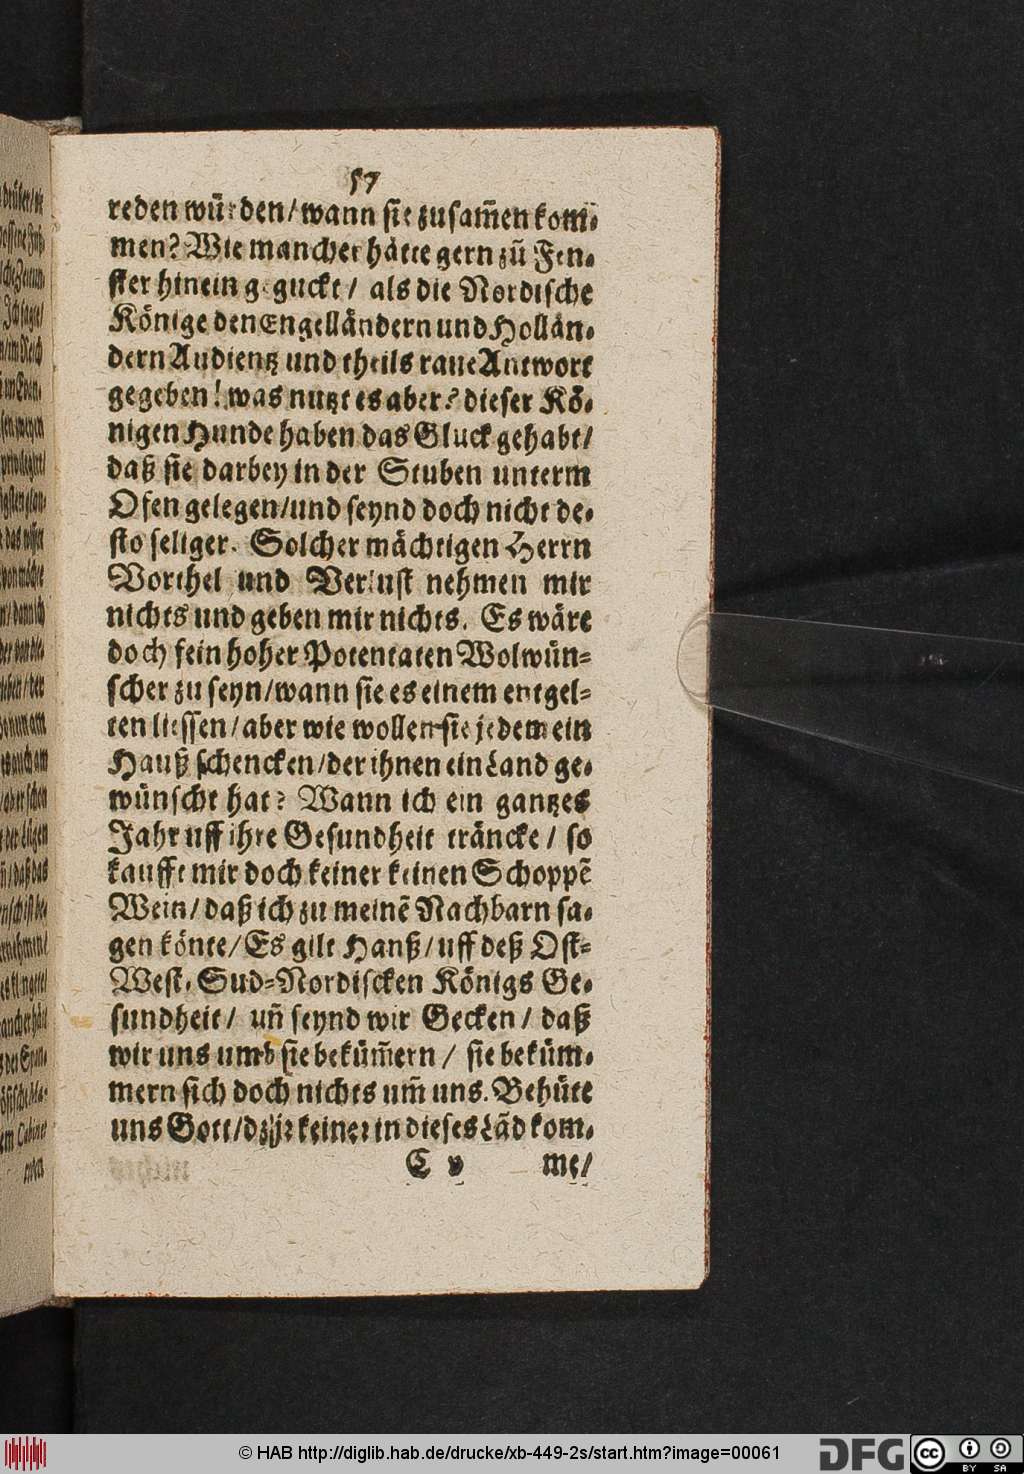 57
reden würden/ wann sie zusam̃en kom-
men? Wie mancher hätte gern zũ Fen-
ster hinein geguckt/ als die Nordische
Könige den Engelländern und Hollän-
dern Audientz und theils raue Antwort
gegeben! was nutzt es aber? dieser Kö-
nigen Hunde haben das Gluck gehabt/
daß sie darbey in der Stuben unterm
Ofen gelegen/ und seynd doch nicht de-
sto seliger. Solcher mächtigen Herrn
Vorthel und Verlust nehmen mir
nichts und geben mir nichts. Es wäre
doch fein hoher Potentaten Wolwün-
scher zu seyn/ wann sie es einem entgel-
ten liessen/ aber wie wollen sie jedem ein
Hauß schencken/ der ihnen ein Land ge-
wünscht hat? Wann ich ein gantzes
Jahr uff ihre Gesundheit träncke/ so
kaufft mir doch keiner keinen Schoppẽ
Wein/ daß ich zu meinẽ Nachbarn sa-
gen könte/ Es gilt Hanß/ uff deß Ost-
West- Sud-Nordiscken Königs Ge-
sundheit/ uñ seynd wir Gecken/ daß
wir uns umb sie beküm̃ern/ sie beküm-
mern sich doch nichts um̃ uns. Behüte
uns Gott/ dz jr keiner in dieses Lãd kom-
C v me/
© HAB http://diglib.hab.de/drucke/xb-449-2s/start.htm?image=00061
DFG
cc
BY SA